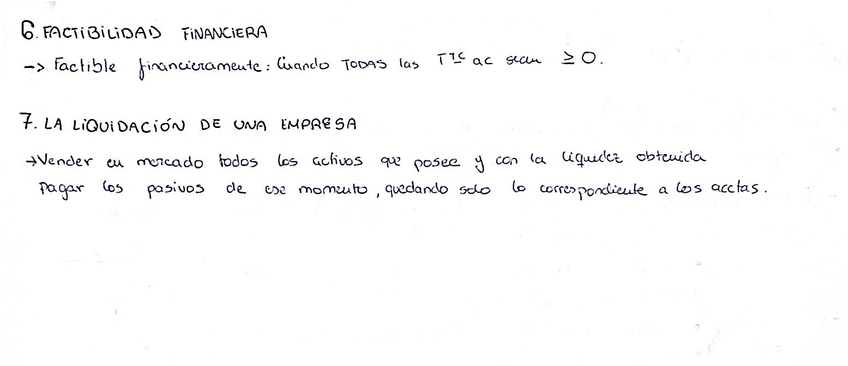 6. FACTIBILIDAD FINANCIERA
-> Factible financieramente: Cuando TODAS las Tᵃˢ ac sean ≥ 0.
7. LA LIQUIDACIÓN DE UNA EMPRESA
→ Vender en mercado todos los activos que posee y con la liquidez obtenida
pagar los pasivos de ese momento, quedando solo lo correspondiente a los acctas.